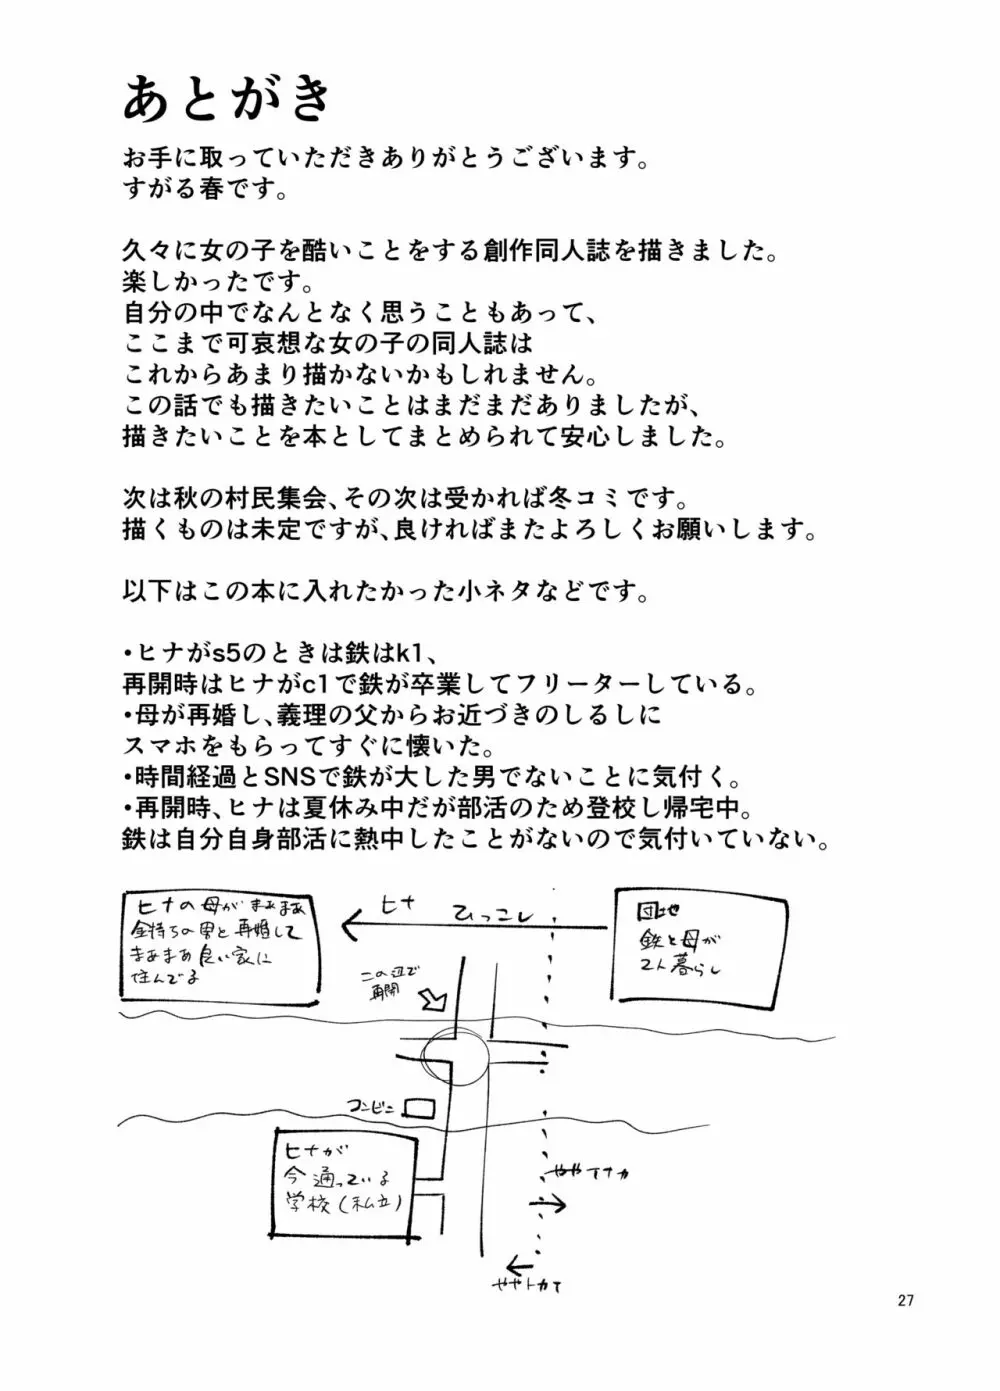 あとがき
お手に取っていただきありがとうございます。
すがる春です。
久々に女の子を酷いことをする創作同人誌を描きました。
楽しかったです。
自分の中でなんとなく思うこともあって、
ここまで可哀想な女の子の同人誌は
これからあまり描かないかもしれません。
この話でも描きたいことはまだまだありましたが、
描きたいことを本としてまとめられて安心しました。
次は秋の村民集会、その次は受かれば冬コミです。
描くものは未定ですが、良ければまたよろしくお願いします。
以下はこの本に入れたかった小ネタなどです。
・ヒナがs5のときは鉄はk1、
再開時はヒナがc1で鉄が卒業してフリーターしている。
・母が再婚し、義理の父からお近づきのしるしに
スマホをもらってすぐに懐いた。
・時間経過とSNSで鉄が大した男でないことに気付く。
・再開時、ヒナは夏休み中だが部活のため登校し帰宅中。
鉄は自分自身部活に熱中したことがないので気付いていない。
ヒナの母がまぁまぁ
金持ちの男と再婚して
まあまあ良い家に
住んでる
ヒナ
ひっこし
団地
鉄と母が
2人暮らし
この辺で
再開
コンビニ
ヒナが
今通っている
学校(私立)
ややイナカ
ややトカイ
27